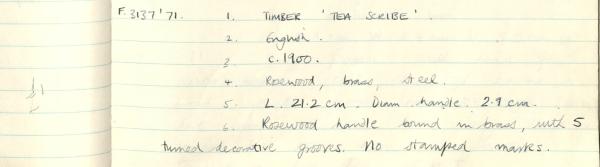 F.3137'71. 1. TIMBER 'TEA SCRIBE'.
2. English.
3 c.1900.
4. Rosewood, brass, steel.
5. L. 21.2 cm. Diam handle. 2.9 cm.
6. Rosewood handle bound in brass, with 5
turned decorative grooves. No stamped marks.